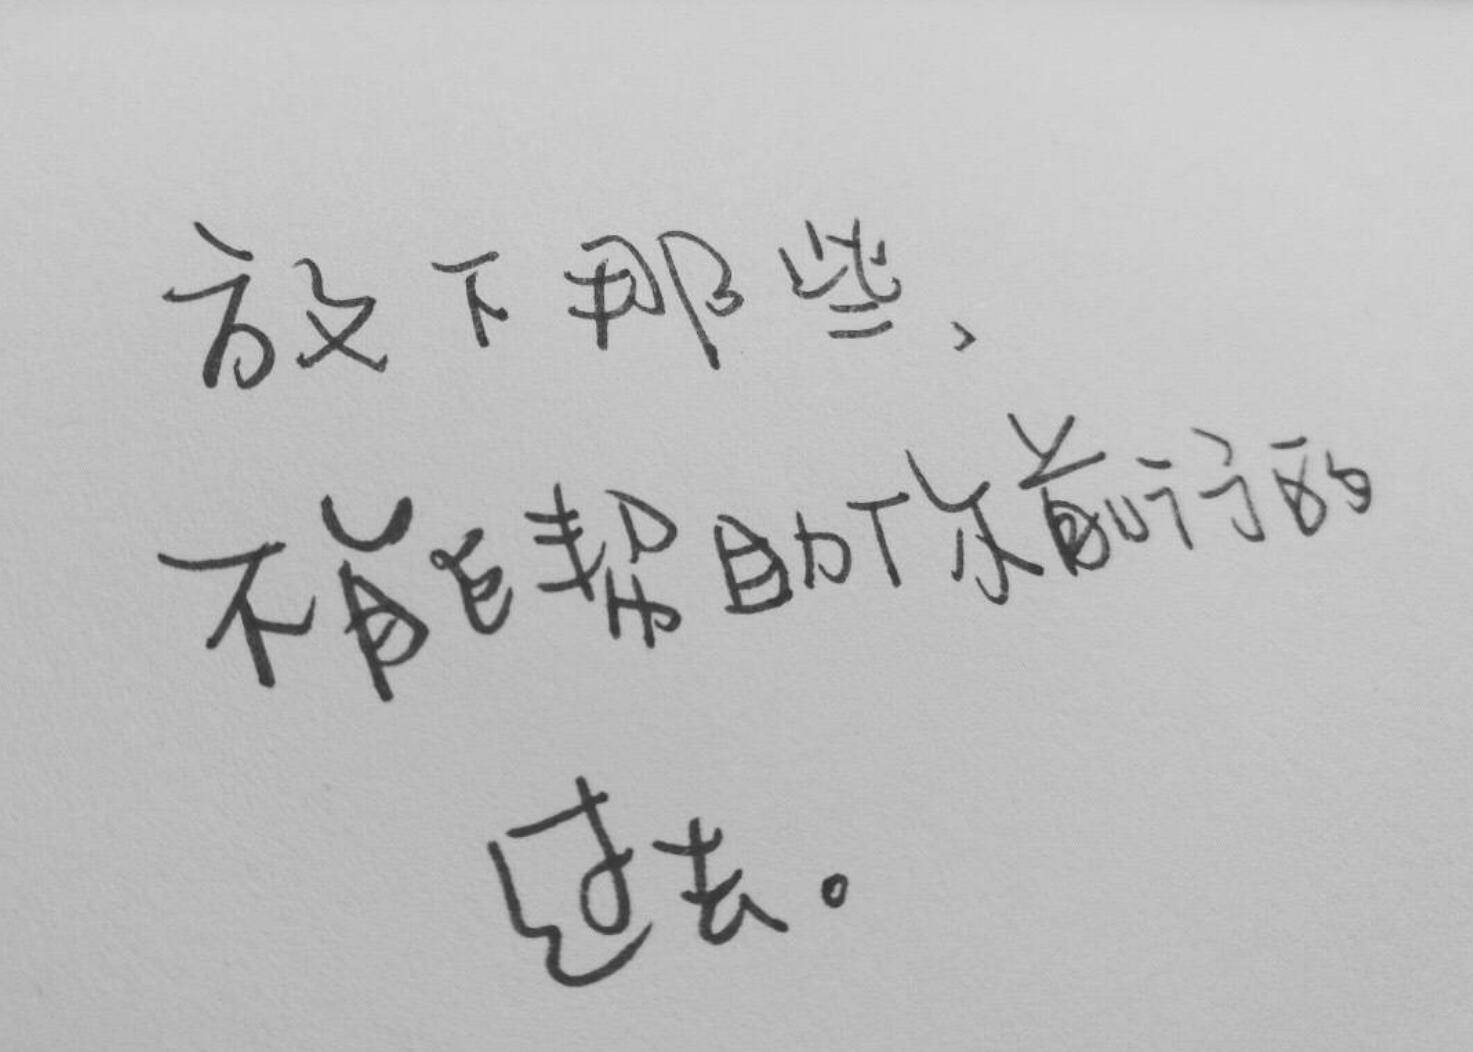 放下那些、
不能帮助你前行的
过去。